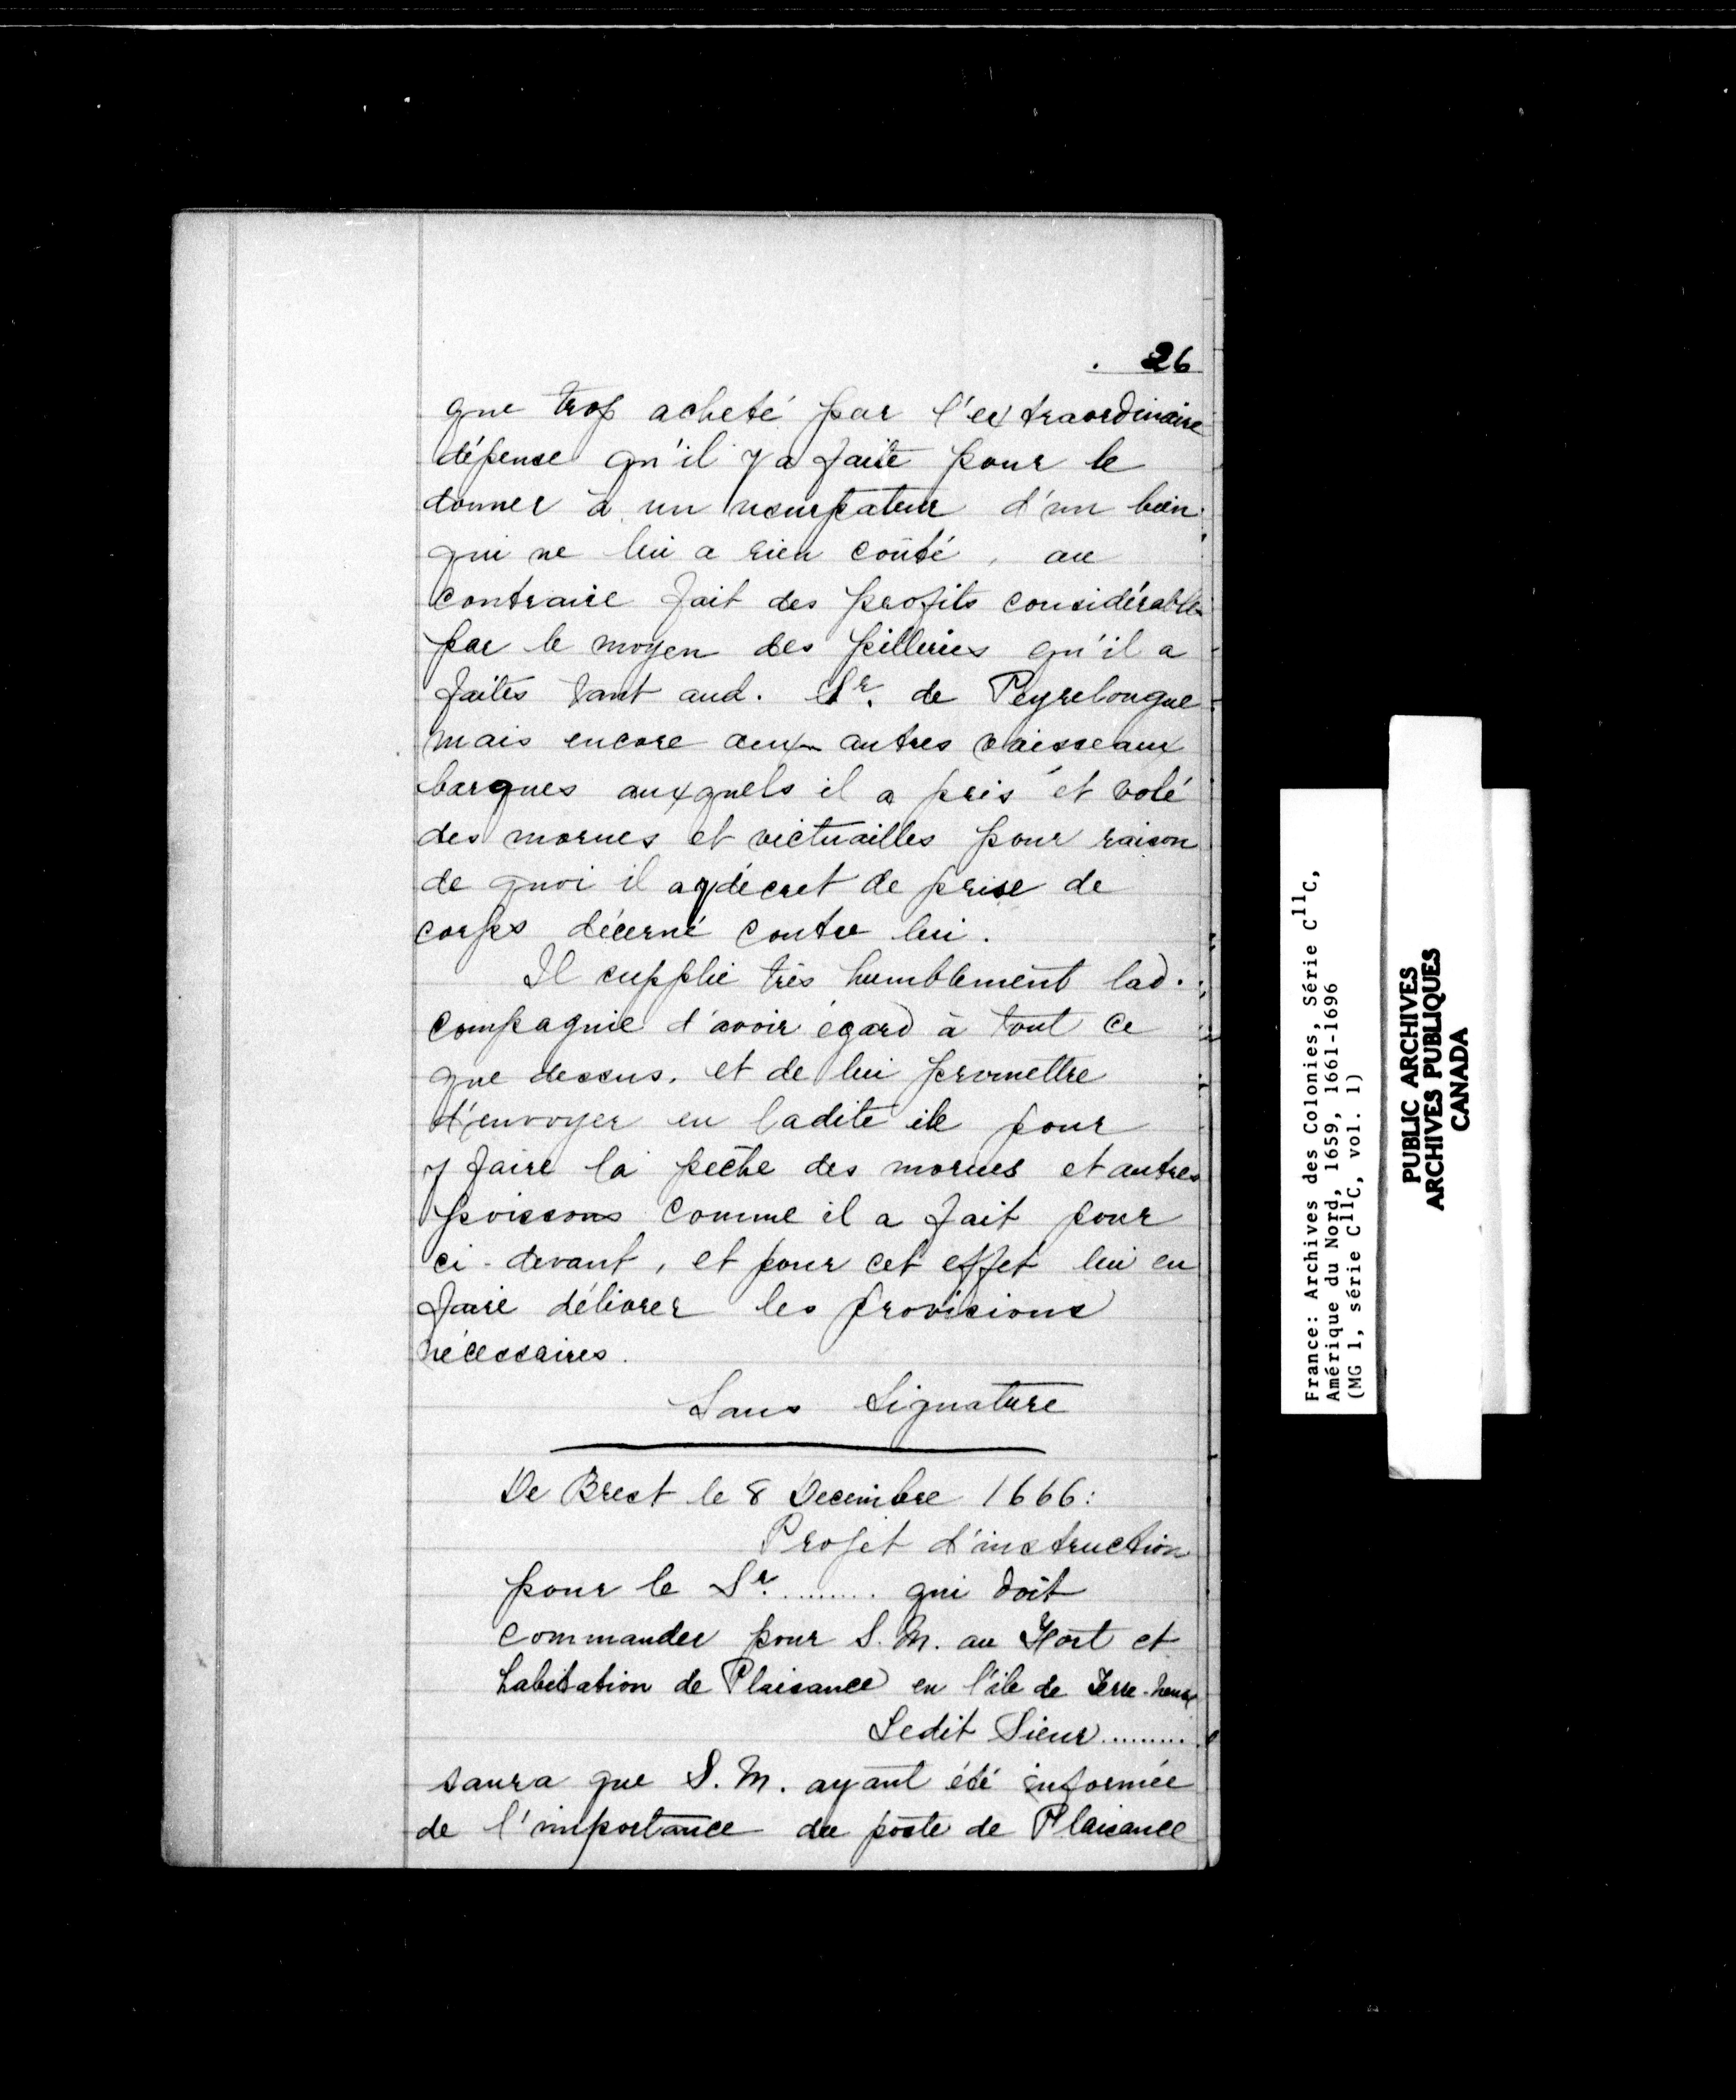 26
que trop acheté par l'extraordinaire
dépense qu'il y a faite pour le
donner à un usurpateur d'un bien
qui ne lui a rien coûté, au
contraire fait des profits considérables
par le moyen des pilleries qu'il a
faites tant aud. Sr. de Peyrelongue
mais encore aux autres vaisseaux
barques auxquels il a pris et volé
des morues et victuailles pour raison
de quoi il a décret de prise de
corps décerné contre lui.
Il supplie très humblement lad.
compagnie d'avoir égard à tout ce
que dessus, et de lui promettre
d'envoyer en ladite ile pour
y faire la pêche des morues et autres
poissons comme il a fait pour
ci-devant, et pour cet effet lui en
faire délivrer les provisions
nécessaires.
Sans Signature
De Brest le 8 Decembre 1666:
Projet d'instruction
pour le Sr. ........ qui doit
commander pour S. M. au Fort et
habitation de Plaisance en l'ile de Terre-neuve
Ledit Sieur .........
saura que S. M. ayant été informée
de l'importance du poste de Plaisance
France: Archives des Colonies, Série C11C,
Amérique du Nord, 1659, 1661-1696
(MG 1, série C11C, vol. 1)
PUBLIC ARCHIVES
ARCHIVES PUBLIQUES
CANADA